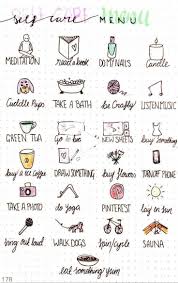 self care MENU
MEDITATION read a book DO MY NAILS Candle
Cuddle Pups TAKE A BATH be Crafty! LISTEN MUSIC
GREEN TEA Go to NEW SHEETS buy something
buy a Ice Coffee DRAW SOMETHING buy flowers TURN OFF PHONE
TAKE A PHOTO do yoga PINTEREST lay in sun
sing out loud WALK DOGS spin/cycle SAUNA
eat something yum!
178